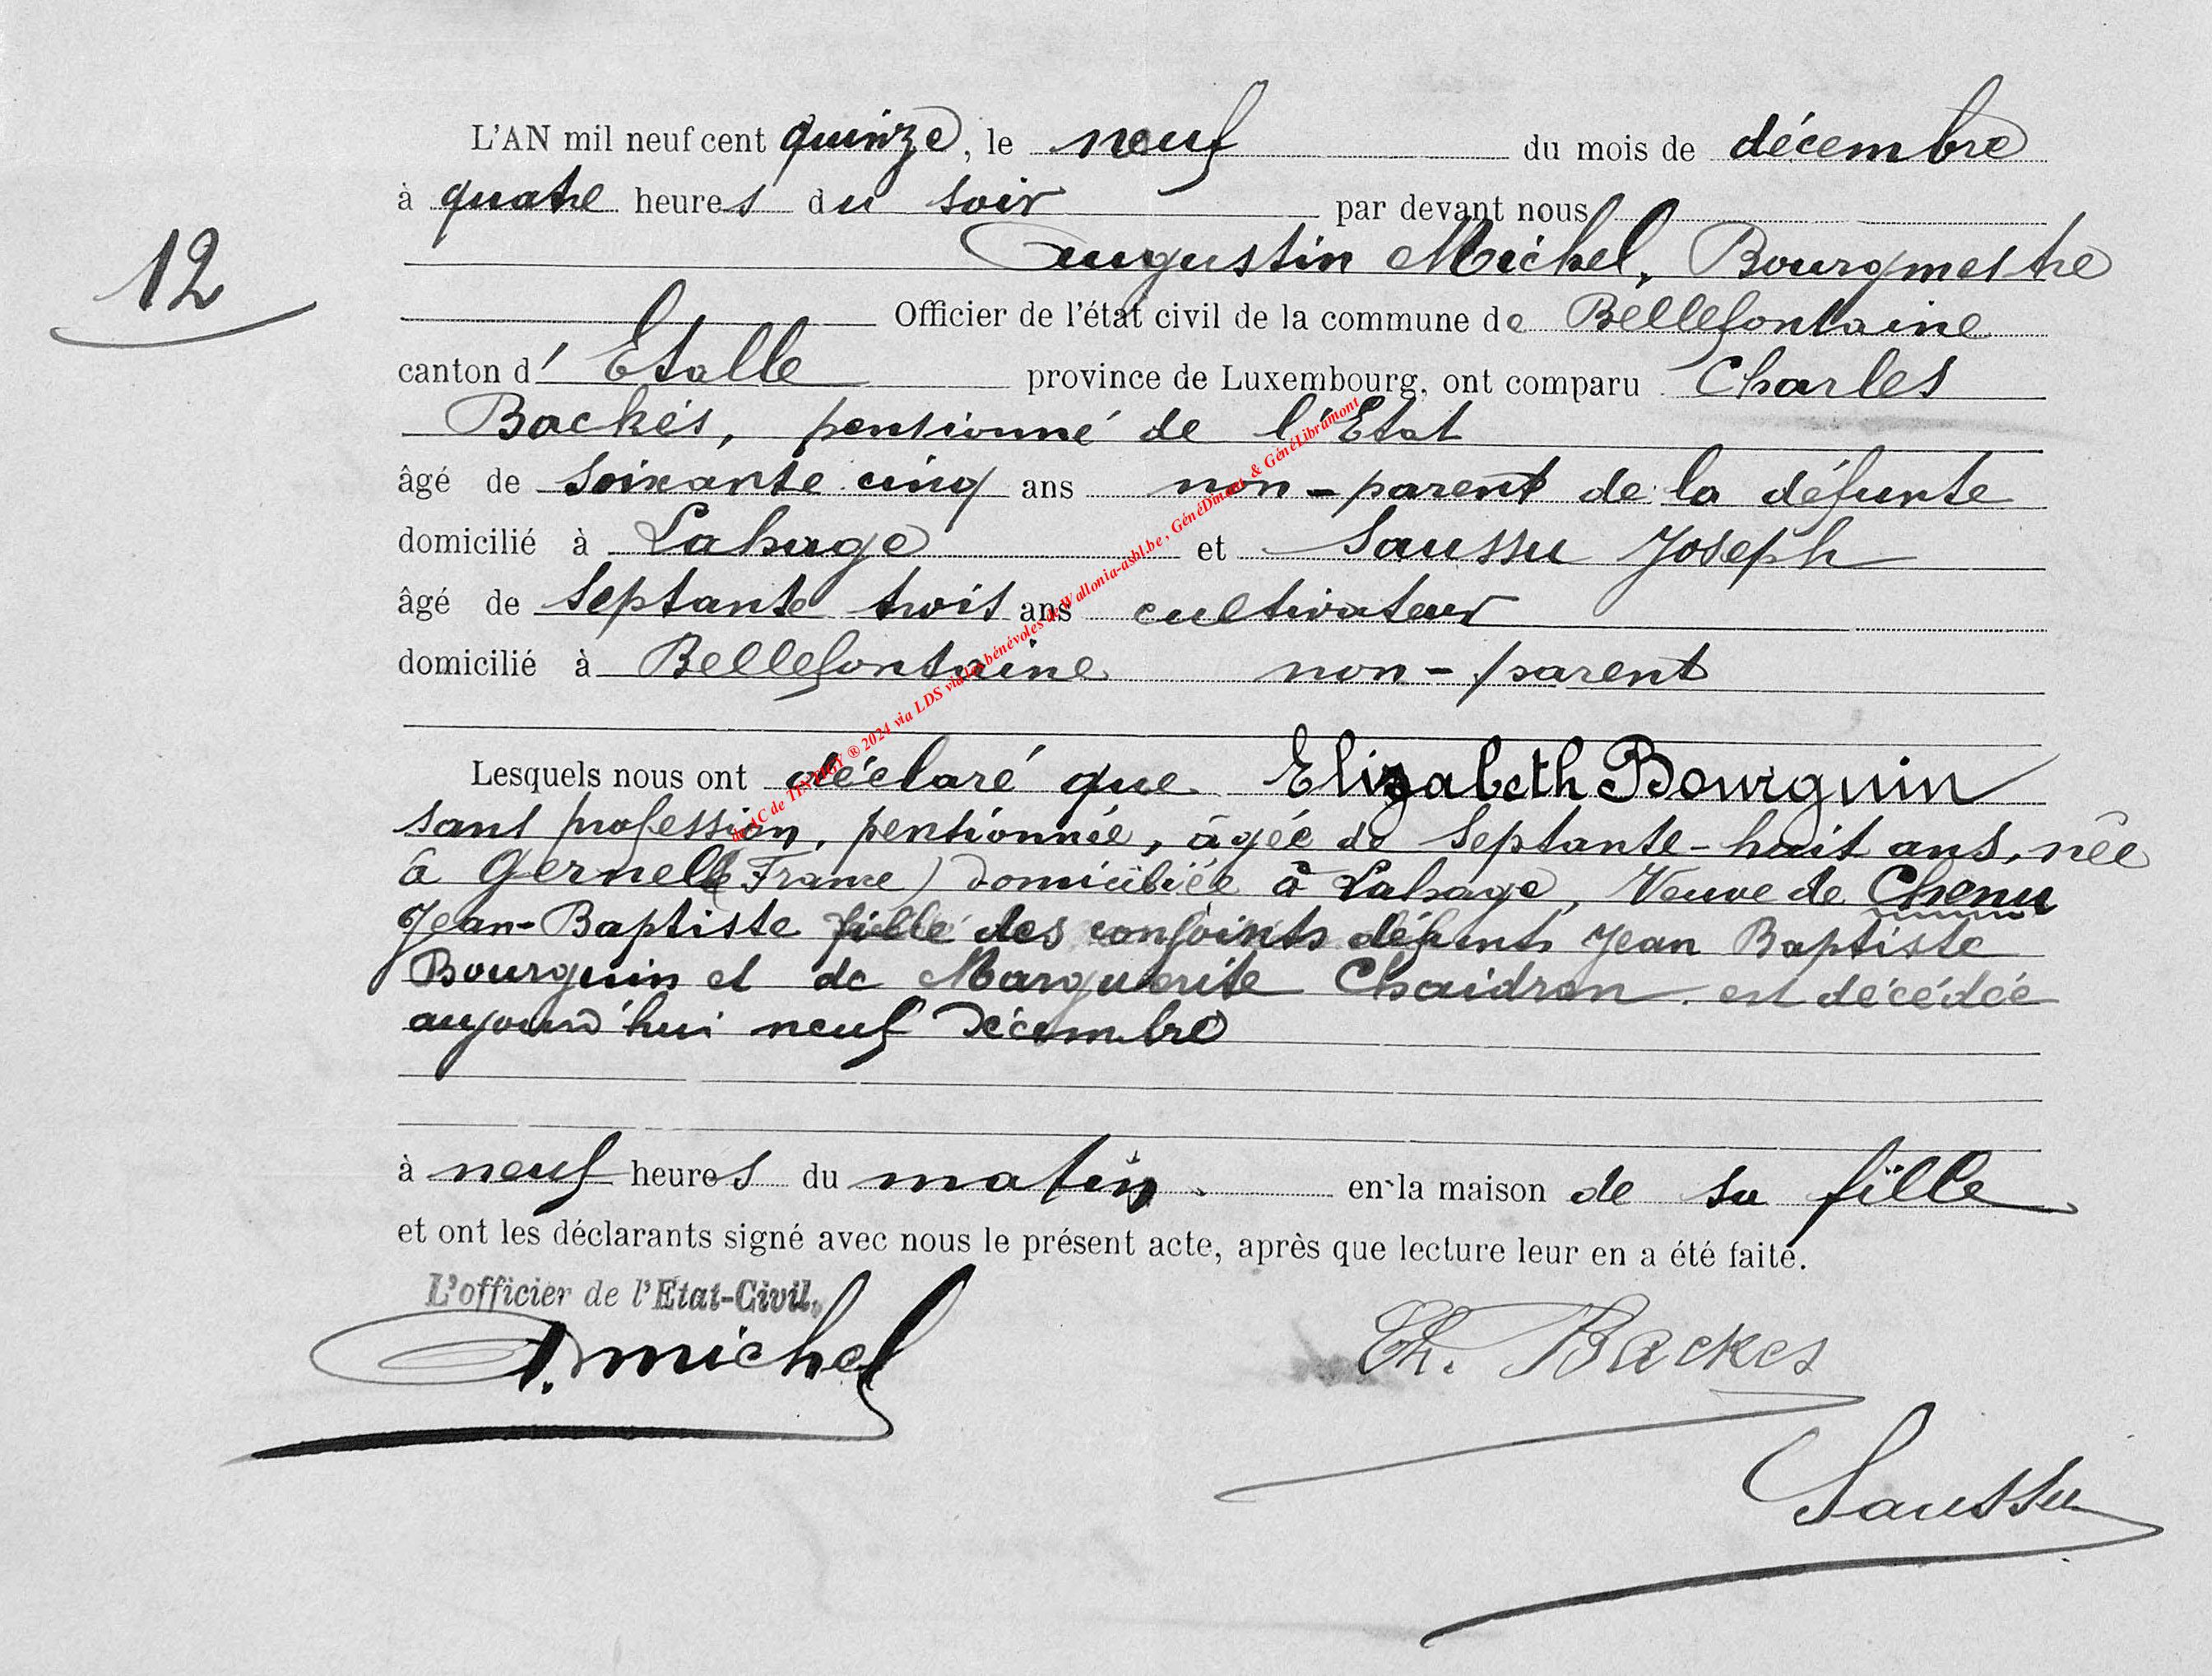 L'AN mil neuf cent quinze, le neuf du mois de décembre
à quatre heures du soir par devant nous
Augustin Michel, Bourgmestre
12
Officier de l'état civil de la commune de Bellefontaine
canton d' Etalle province de Luxembourg, ont comparu Charles
Backés, pensionné de l'Etat
âgé de soixante cinq ans non-parent de la défunte
domicilié à Lahage et Saussu Joseph
âgé de septante trois ans cultivateur
domicilié à Bellefontaine non-parent
Lesquels nous ont déclaré que Elizabeth Bourguin
sans profession, pensionnée, âgée de septante-huit ans, née
à Gernelle (France) domiciliée à Lahage, Veuve de Chenu
Jean-Baptiste fille des conjoints défunts Jean Baptiste
Bourguin et de Marguerite Chaidron est décédée
aujourd'hui neuf décembre
à neuf heures du matin en la maison de sa fille
et ont les déclarants signé avec nous le présent acte, après que lecture leur en a été faite.
L'officier de l'Etat-Civil,
A. Michel
Ch. Backes
Saussu
de AC de TINTIGY ® 2024 via LDS via les bénévoles de Wallonia-asbl.be, GénéDinant & GénéLibramont